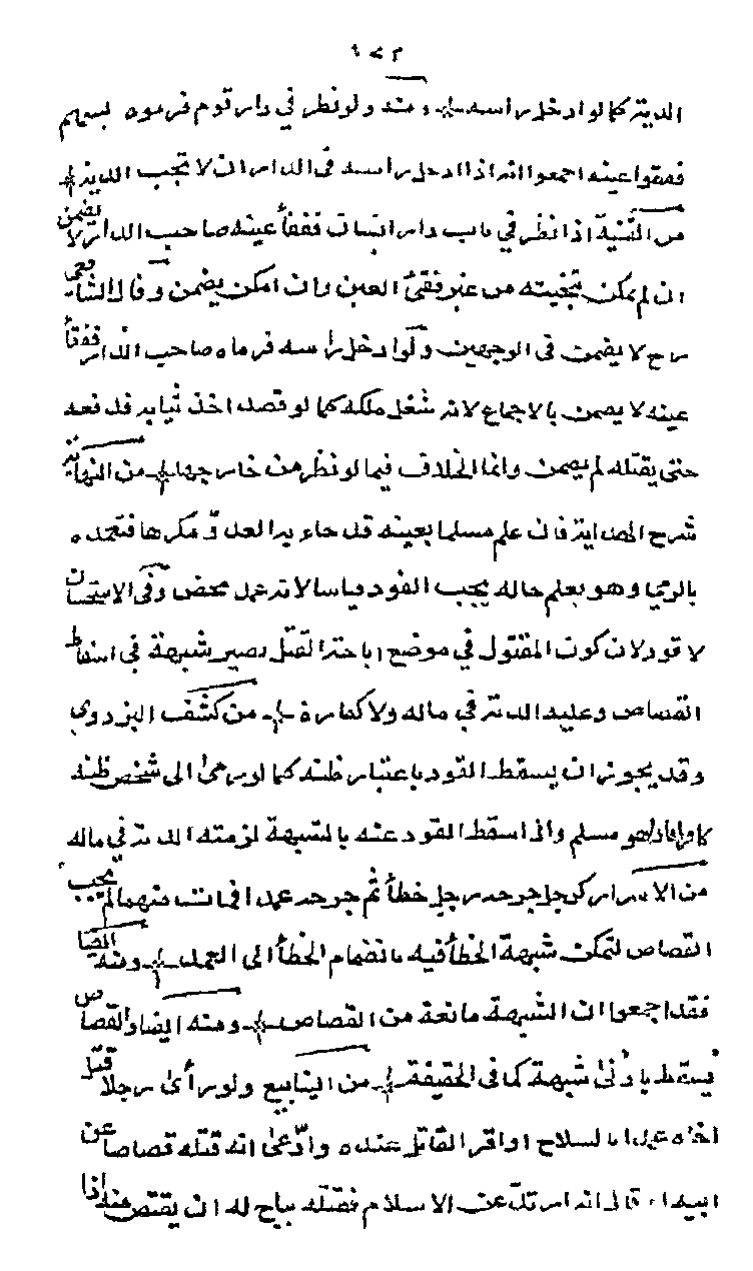 الدية كما لو ادخل رأسه ومنه ولو نظر في دار قوم فرموه بسهم
ففقؤا عينه اجمعوا انه اذا ادخل رأسه فى الدار ان لا تجب الدية
من القنية اذا نظر في باب دار انسان ففقأ عينه صاحب الدار لا يضمن
ان لم يمكن تنحيته من غير فقئ العين وان امكن يضمن وقال الشافعى
رح لا يضمن فى الوجهين ولو ادخل رأسه فرماه صاحب الدار ففقأ
عينه لا يضمن بالاجماع لانه شغل ملكه كما لو قصد اخذ ثيابه فدفعه
حتى يقتله لم يضمن وانما الخلاف فيما لو نظر من خارجها من النهاية
شرح الهداية فان علم مسلما بعينه قد جاء به العدو مكرها فتعمده
بالرمى وهو يعلم حاله يجب القود قياسا لانه عمد محض وفى الاستحسان
لا قود لان كون المقتول في موضع اباحة القتل يصير شبهة فى اسقاط
القصاص وعليه الدية في ماله ولا كفارة من كشف البزدوى
وقد يجوز ان يسقط القود باعتبار ظنه كما لو رمى الى شخص ظنه
كافرا فاذا هو مسلم واذا سقط القود عنه بالشبهة لزمته الدية في ماله
من الاسرار كرجل جرحه رجل خطأ ثم جرحه عمدا فمات منهما لم يجب
القصاص لتمكن شبهة الخطأ فيه بانضمام الخطأ الى العمد ومنه ايضا
فقد اجمعوا ان الشبهة مانعة من القصاص ومنه ايضا والقصاص
يسقط بادنى شبهة كما فى الحقيقة من الينابيع ولو رأى رجلا قتل
اخاه عمدا بالسلاح او اقر القاتل عنده وادعى انه قتله قصاصا عن
ابيه او قال انه ارتد عن الاسلام فقتله يباح له ان يقتص منه اذا